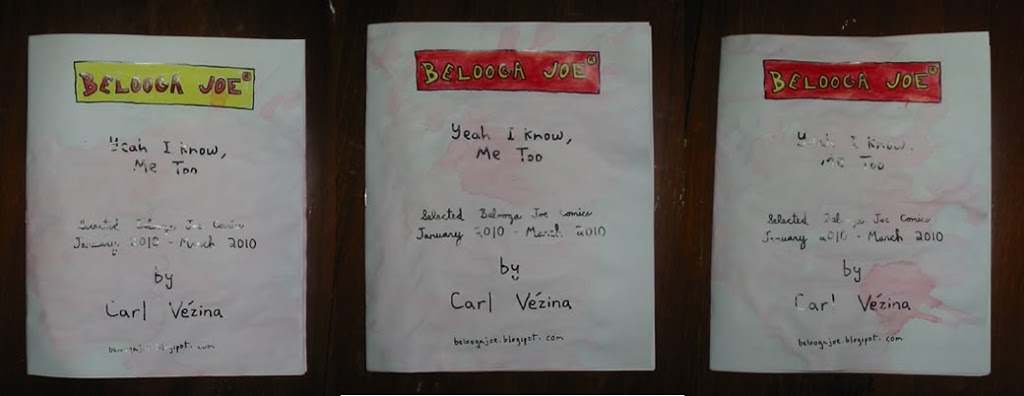 BELOOGA JOE
Yeah I know,
Me Too
Selected Belooga Joe Comics
January 2010 - March 2010
by
Carl Vézina
beloogajoe.blogspot.com
BELOOGA JOE
Yeah I know,
Me Too
Selected Belooga Joe Comics
January 2010 - March 2010
by
Carl Vézina
beloogajoe.blogspot.com
BELOOGA JOE
Yeah I know,
Me Too
Selected Belooga Joe Comics
January 2010 - March 2010
by
Carl Vézina
beloogajoe.blogspot.com